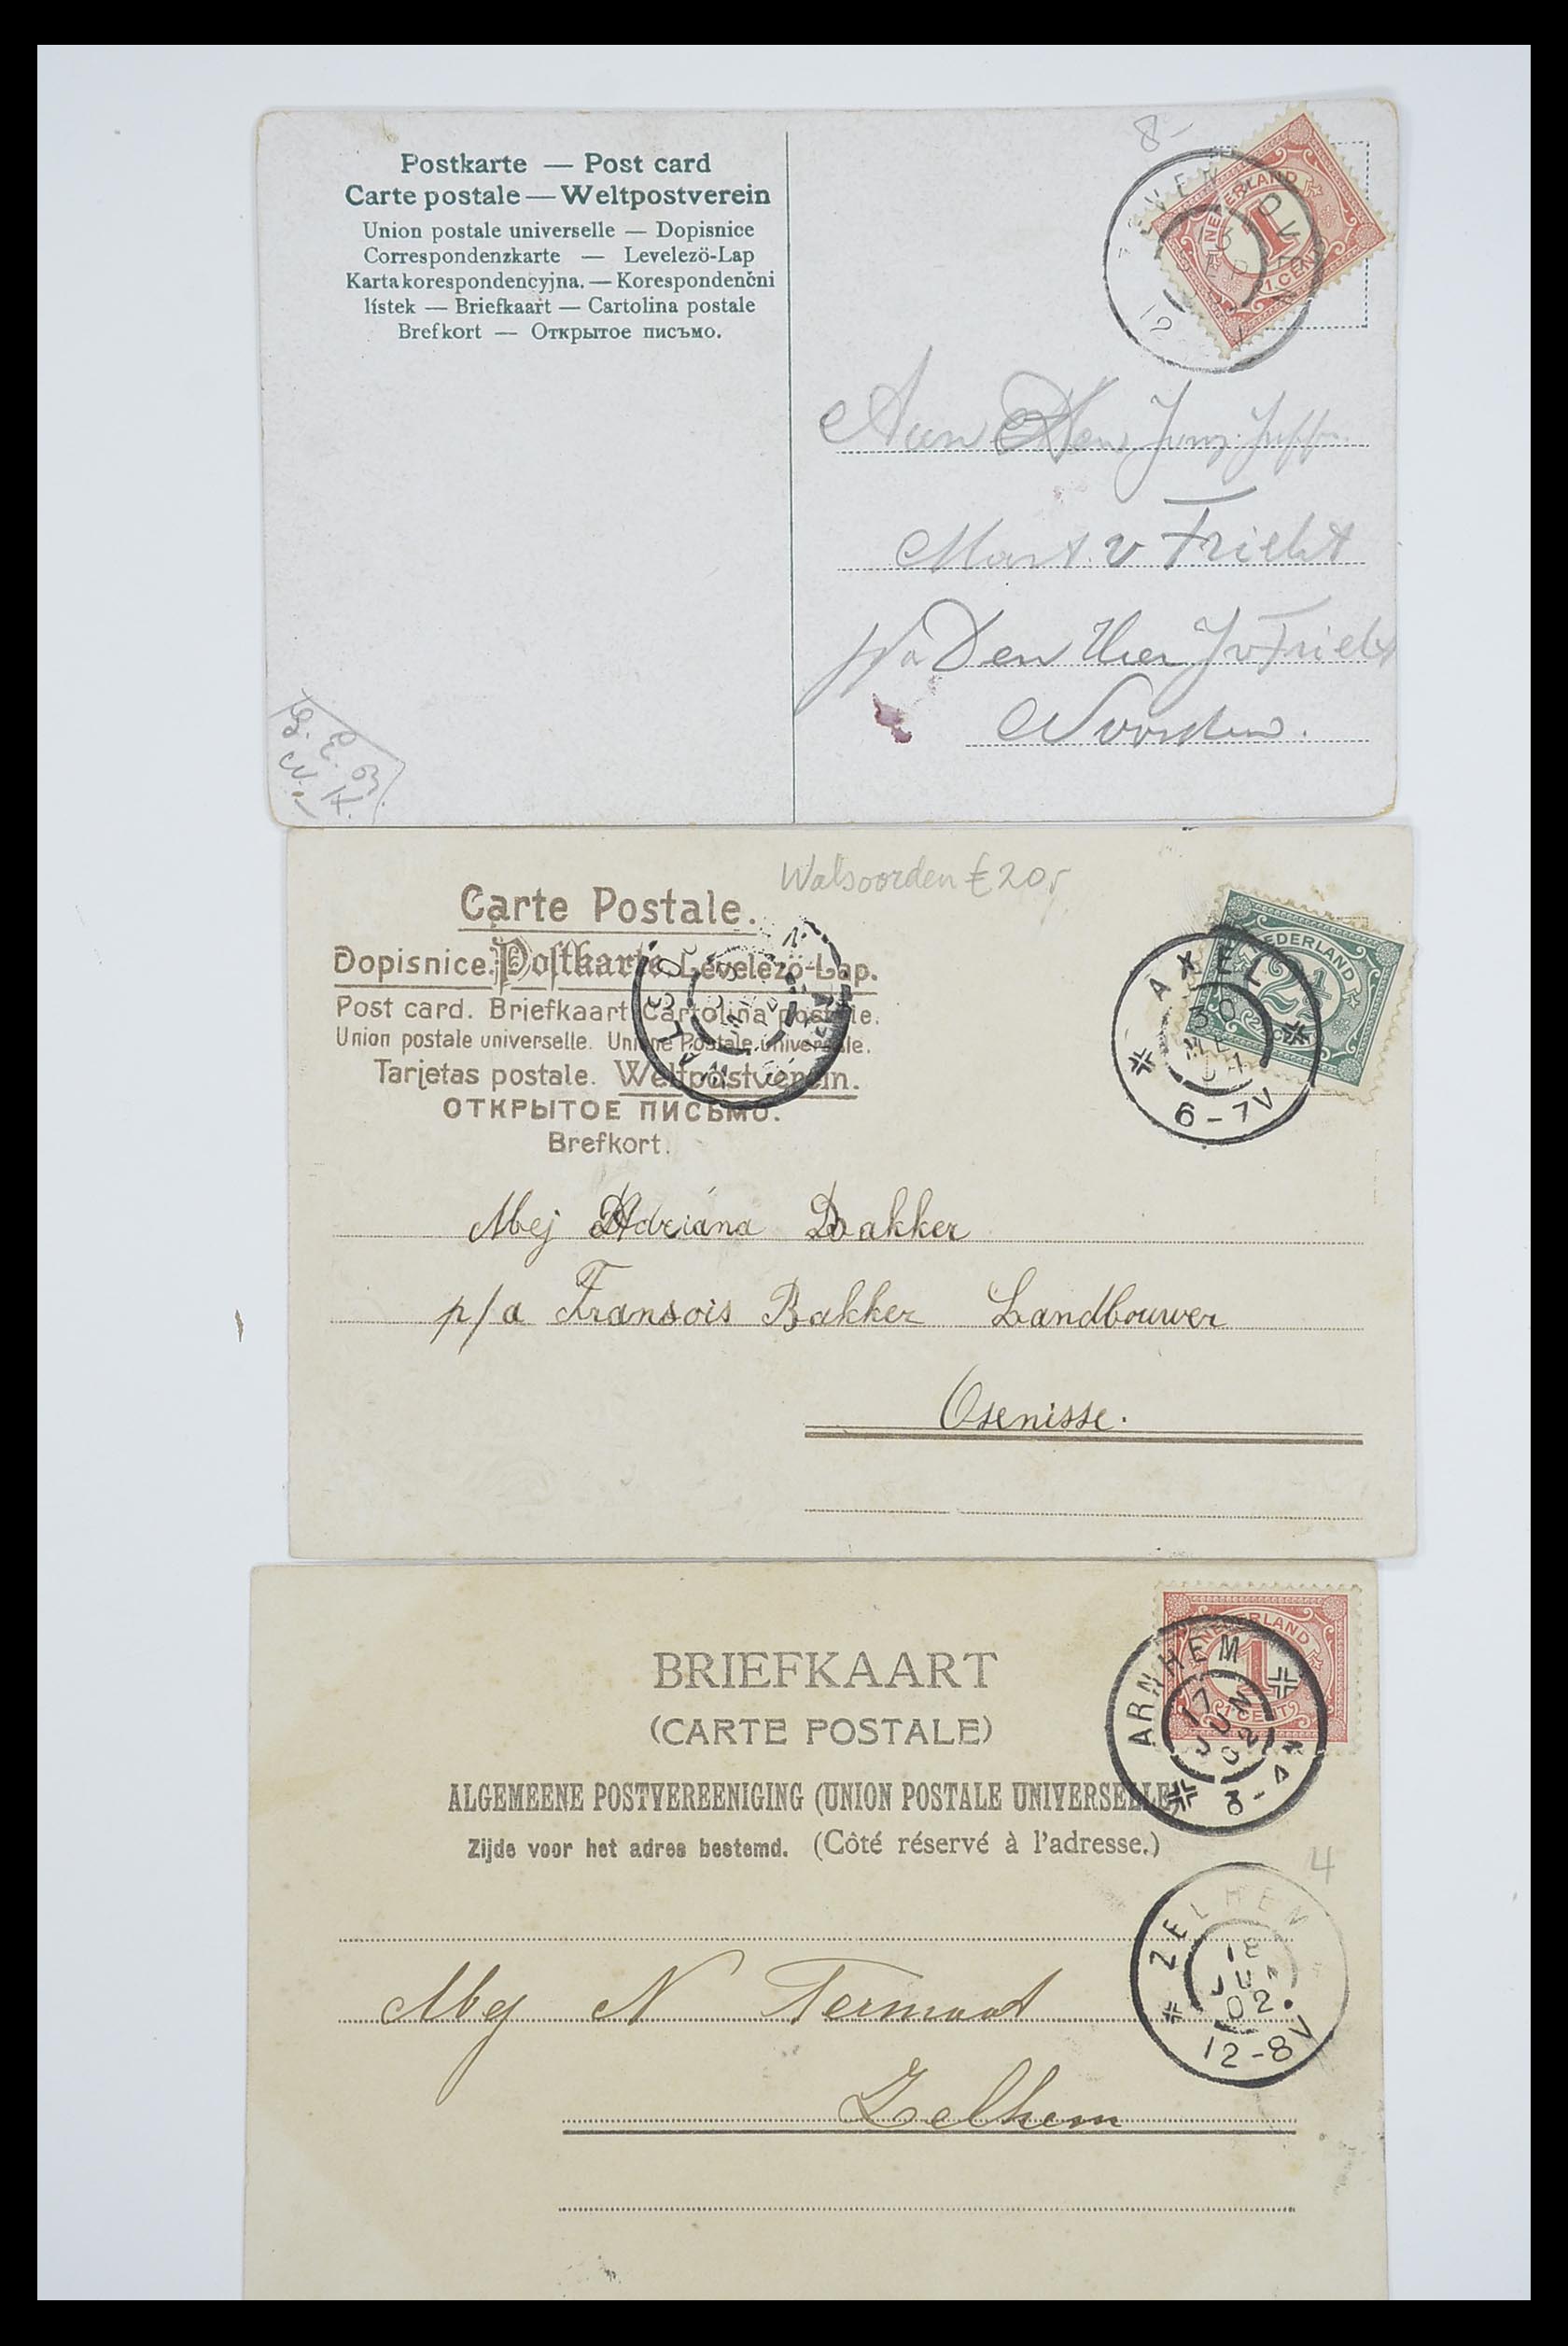 Postkarte — Post card
Carte postale — Weltpostverein
Union postale universelle — Dopisnice
Correspondenzkarte — Levelezö-Lap
Karta korespondencyjna. — Korespondenčni
lístek — Briefkaart — Cartolina postale
Brefkort — Открытое письмо.
8-
NEDERLAND
1
1 CENT
ZEVEN
12
Aan Den Jong. Juffr.
Mart. v Fricht
p/a Den Heer J v Fricht
Noorden.
G. E. B.
N. K.
Walsoorden € 20,-
Carte Postale.
Dopisnice. Postkarte. Levelezö-Lap.
Post card. Briefkaart. Cartolina postale.
Union postale universelle. Unione Postale universale.
Tarjetas postale. Weltpostverein.
ОТКРЫТОЕ ПИСЬМО.
Brefkort.
NEDERLAND
2½
AXEL
30
MEI
6-7V
Mej Adriana Bakker
p/a Fransois Bakker Landbouwer
Osenisse.
BRIEFKAART
(CARTE POSTALE)
ALGEMEENE POSTVEREENIGING (UNION POSTALE UNIVERSELLE)
Zijde voor het adres bestemd. (Côté réservé à l'adresse.)
NEDERLAND
1
1 CENT
ARNHEM
17
JUN
02
3-4N
4
ZELHEM
18
JUN
02
12-8V
Mej N Termaat
Zelhem